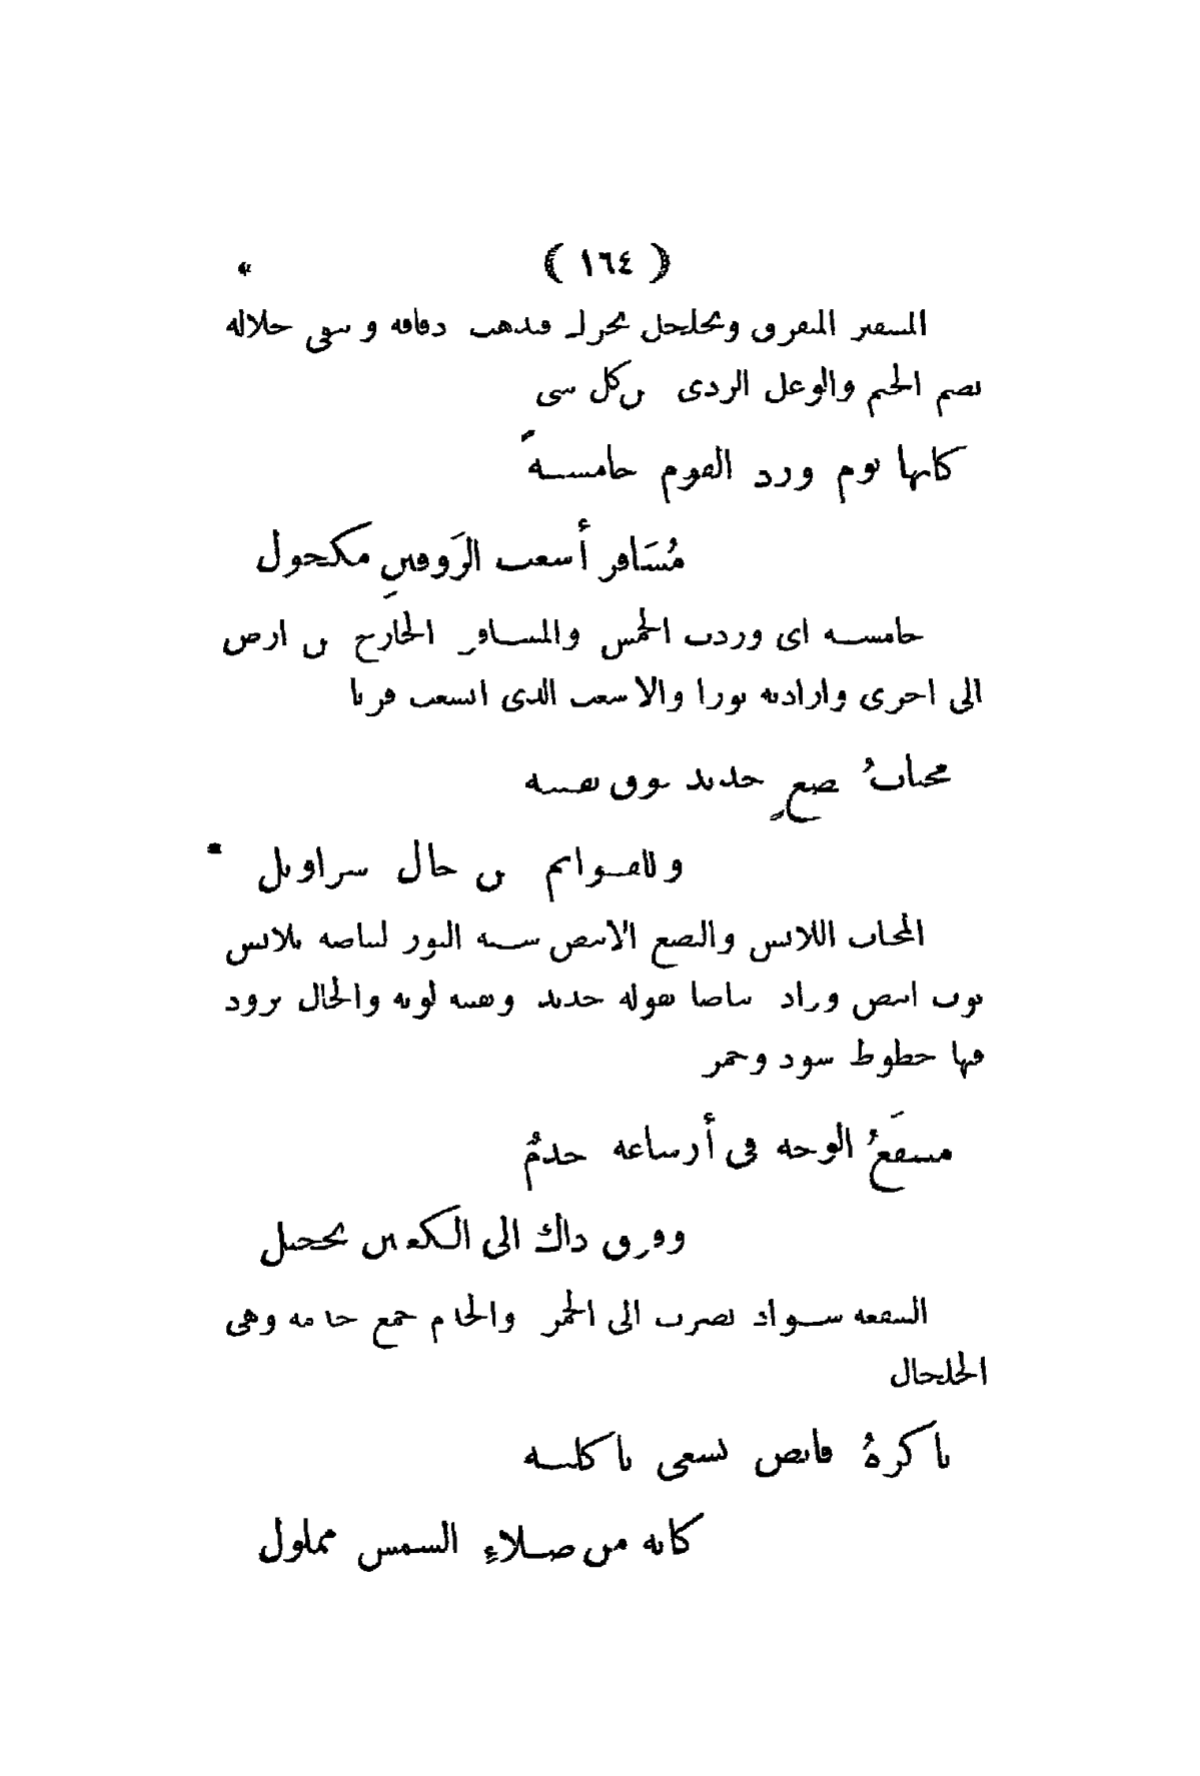 ﴿ ١٦٤ ﴾
السفير المتفرق ويجلجل يحرك فيذهب دقاقه ويبقى جلاله
بضم الجيم والوغل الردى من كل شى
كانها يوم ورد القوم خامسةً
مُسَافر أشعب الرَوقينِ مكحول
خامسة اى وردت الخمس والمسافر الخارج من ارض
الى اخرى وارادبه ثورا والاشعب الذى انشعب قرنا
مجتابُ نصعٍ جديد فوق نقبته
وللقوائم من خال سراويل
المجتاب اللابس والنصع الابيض شبه الثور لبياضه بلابس
ثوب ابيض وزاد بياضا بقوله جديد ونقبته لونه والخال برود
فيها خطوط سود وحمر
مسفَعُ الوجه فى أرساغه خدمٌ
وفوق ذاك الى الكعبين تحجيل
السفعه سواد يضرب الى الحمر والخام جمع خامه وهى
الخلخال
باكرهُ قانص يسعى باكلبه
كانه من صلاءِ الشمس مملول